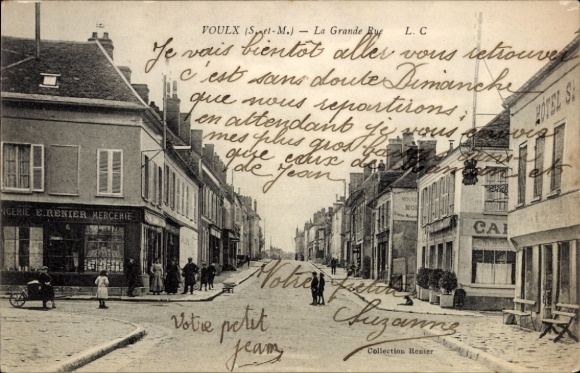 VOULX (S.-et-M.) — La Grande Rue L. C
Je vais bientot aller vous retrouver
c'est sans doute Dimanche
que nous repartirons,
en attendant je vous envoie
mes plus gros baisers ainsi
que ceux de
de Jean
HÔTEL S
NCERIE E. RENIER MERCERIE
CAF
Votre petite
Suzanne
Votre petit
jean
Collection Renier